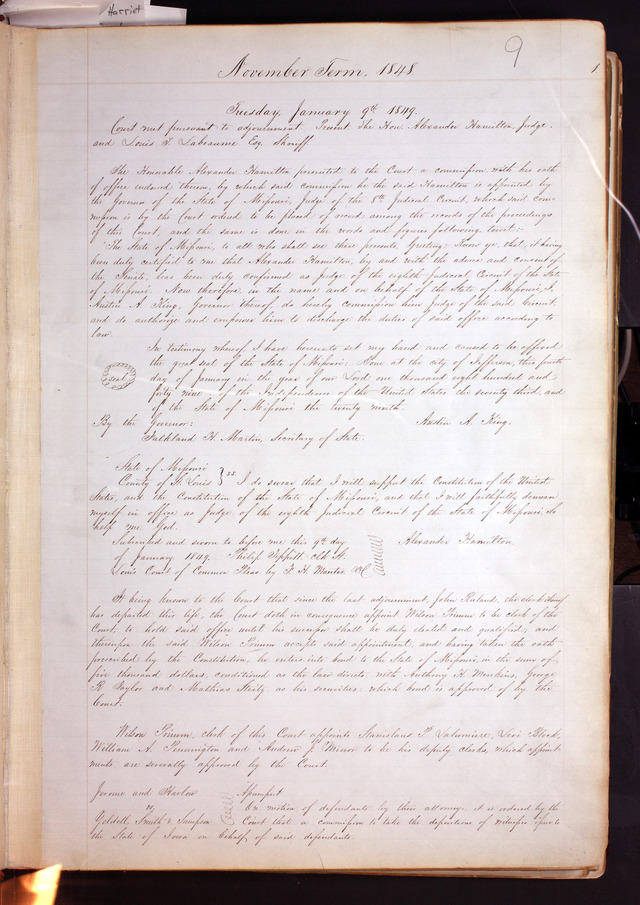 Harriet
9
1
November Term, 1848
Tuesday January 9th 1849.
Court met pursuant to adjournment. Present The Hon. Alexander Hamilton, Judge.
and Louis T. Labeaume Esq. Sheriff
The Honorable Alexander Hamilton presented to the Court a commission, with his oath
of office endorsed thereon, by which said commission he the said Hamilton is appointed by
the Governor of the State of Missouri, Judge of the 8th Judicial Circuit, which said com-
mission is by the Court ordered to be placed of record among the records of the proceedings
of this Court, and the same is done in the words and figures following, towit:-
The State of Missouri, to all who shall see these presents, Greeting: Know ye, that, it having
been duly certified to me that Alexander Hamilton, by and with the advice and consent of
the Senate, has been duly confirmed as Judge of the eighth Judicial Circuit of the State
of Missouri. Now therefore, in the name and on behalf of the State of Missouri, I,
Austin A. King, Governor thereof, do hereby commission him Judge of the said Circuit
and do authorize and empower him to discharge the duties of said office according to
law.
In testimony whereof I have hereunto set my hand and caused to be affixed
the great seal of the State of Missouri: Done at the city of Jefferson, this fourth
seal
day of January in the year of our Lord one thousand eight hundred and
forty nine; of the Independence of the United States the seventy third, and
of the State of Missouri the twenty ninth.
By the Governor: Austin A. King.
Falkland H. Martin, Secretary of State.
State of Missouri
County of St. Louis } ss I do swear that I will support the Constitution of the United
States, and the Constitution of the State of Missouri, and that I will faithfully demean
myself in office as Judge of the eighth Judicial Circuit of the State of Missouri. So
help me God.
Subscribed and sworn to before me this 9th day Alexander Hamilton
of January 1849. Philip Tippett clk St.
Louis Court of Common Pleas by F. H. DC
It being known to the Court that since the last adjournment, John Ruland, the clerk thereof
has departed this life, the Court doth in consequence appoint Wilson Primm to be clerk of the
Court, to hold said office until his successor shall be duly elected and qualified; and
thereupon the said Wilson Primm accepts said appointment, and having taken the oath
prescribed by the Constitution, he enters into bond to the State of Missouri, in the sum of
five thousand dollars, conditioned as the law directs, with Anthony H. Menkins, George
R Taylor and Mathias Steitz as his securities: which bond is approved of by the
Court.
Wilson Primm, clerk of this Court appoints Stanislaus P. Lalumiere, Levi Block,
William A. Pennington and Andrew J. Minor to be his deputy clerks, which appoint-
ments are severally approved by the Court.
Jerome and Harlow Assumpsit
vs On motion of defendants by their attorney, it is ordered by the
Yeldell, Smith & Simpson Court that a commission to take the depositions of witnesses issue to
the State of Iowa on behalf of said defendants.